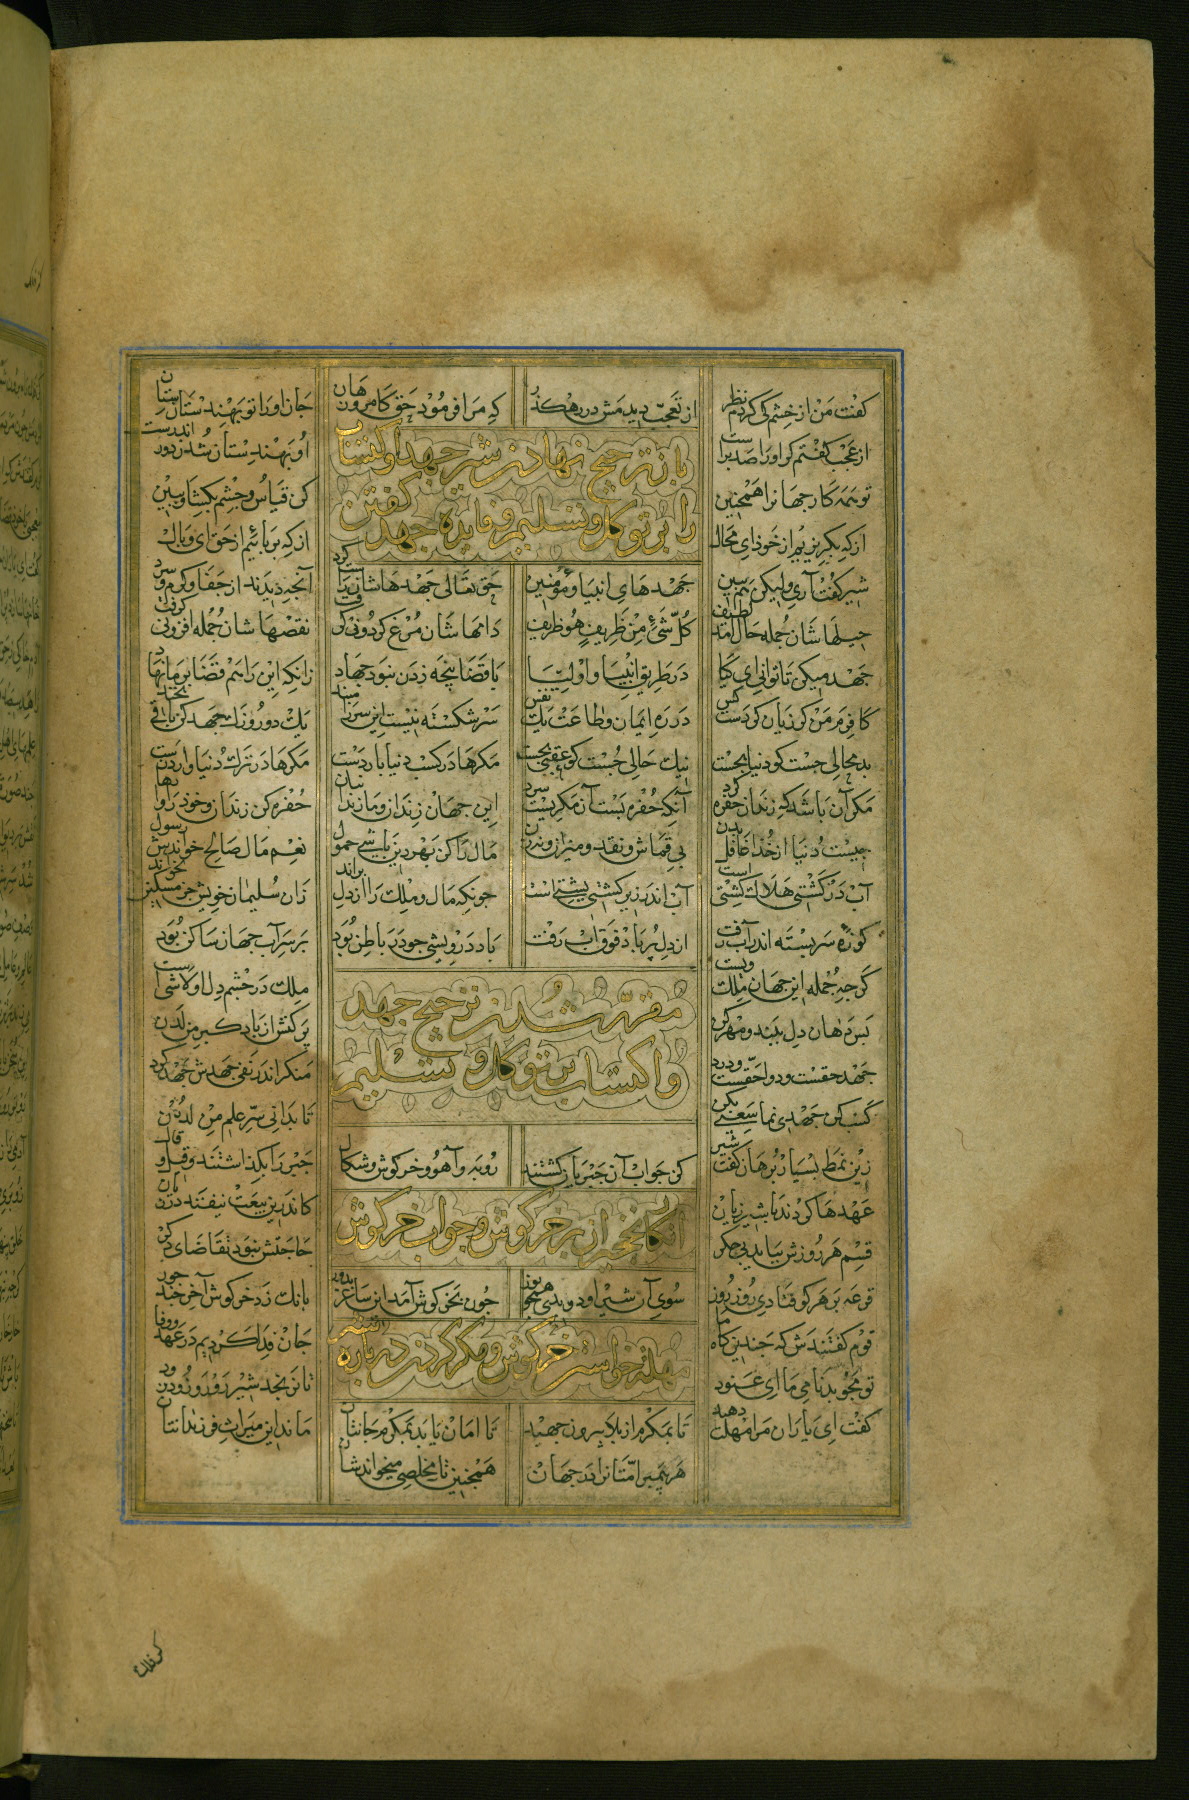 گفت من از خشم کی کردم نظر از تعجب دیدمش در رهگذر که مرا فرمود حق کامروز هان جان او را تو بهندستان ستان
از عجب گفتم گر او را صد پرست او بهندستان شدن دور اندرست
باز ترجیح نهادن شیر جهد و اکتساب
تو همه کار جهانرا همچنین کن قیاس و چشم بگشا و ببین
را بر توکل و تسلیم و فایده جهد گفتن
از که بگریزیم از خود ای محال از که برتابیم از حق ای وبال
شیر گفت آری ولیکن هم ببین جهدهای انبیا و مؤمنین حق تعالی جهدهاشان راست کرد آنچه دیدند از جفا و گرم و سرد
حیلهاشان جمله حال آمد لطیف کل شیء من ظریف هو ظریف دامهاشان مرغ گردونی گرفت نقصهاشان جمله افزونی گرفت
جهد میکن تا توانی ای کیا در طریق انبیا و اولیا با قضا پنجه زدن نبود جهاد زانکه این را هم قضا بر ما نهاد
کافرم من گر زیان کردست کس در ره ایمان و طاعت یک نفس سر شکسته نیست این سر را مبند یک دو روزک جهد کن باقی بخند
بد محالی جست کو دنیا بجست نیک حالی جست کو عقبی بجست مکرها در کسب دنیا باردست مکرها در ترک دنیا واردست
مکر آن باشد که زندان حفره کرد آنکه حفره بست آن مکریست سرد این جهان زندان و ما زندانیان حفره کن زندان و خود را وا رهان
چیست دنیا از خدا غافل بدن بی قماش و نقده و میزان و زن مال را کز بهر دین باشی حمول نعم مال صالح خواندش رسول
آب در کشتی هلاک کشتی است آب اندر زیر کشتی پشتی است چونکه مال و ملک را از دل براند زان سلیمان خویش جز مسکین نخواند
کوزه سربسته اندر آب رفت از دل پر باد فوق آب رفت باد درویشی چو در باطن بود بر سر آب جهان ساکن بود
گرچه جمله این جهان ملک ویست ملک در چشم دل او لاشی است
مقرر شدن ترجیح جهد
بس دهان دل ببند و مهر کن پر کنش از باد کبر من لدن
جهد حقست و دوا حقست و درد منکر اندر نفی جهدش جهد کرد
و اکتساب بر توکل و تسلیم
کسب کن جهدی نما سعیی بکن تا بدانی سر علم من لدن
زین نمط بسیار برهان گفت شیر کز جواب آن جبریان گشتند روبه و آهو و خرگوش و شکال جبر را بگذاشتند و قیل و قال
عهدها کردند با شیر ژیان کاندرین بیعت نیفتد در زیان
انکار نخجیران بر خرگوش و جواب خرگوش
قسم هر روزش بیاید بی جگر حاجتش نبود تقاضای دگر
قرعه بر هر کو فتادی روز روز سوی آن شیر او دویدی همچو یوز چون بخرگوش آمد این ساغر بدور بانگ زد خرگوش آخر چند جور
قوم گفتندش که چندین گاه ما جان فدا کردیم در عهد و وفا
مهلت خواستن خرگوش و مکر کردن در باره
تو مجو بدنامی ما ای عنود تا نرنجد شیر رو رو زود زود
گفت ای یاران مرا مهلت دهید تا بمکرم از بلا بیرون جهید تا امان یابد بمکرم جانتان ماند این میراث فرزندانتان
هر پیمبر امتانرا در جهان همچنین تا مخلصی میخواندشان
کز فلک